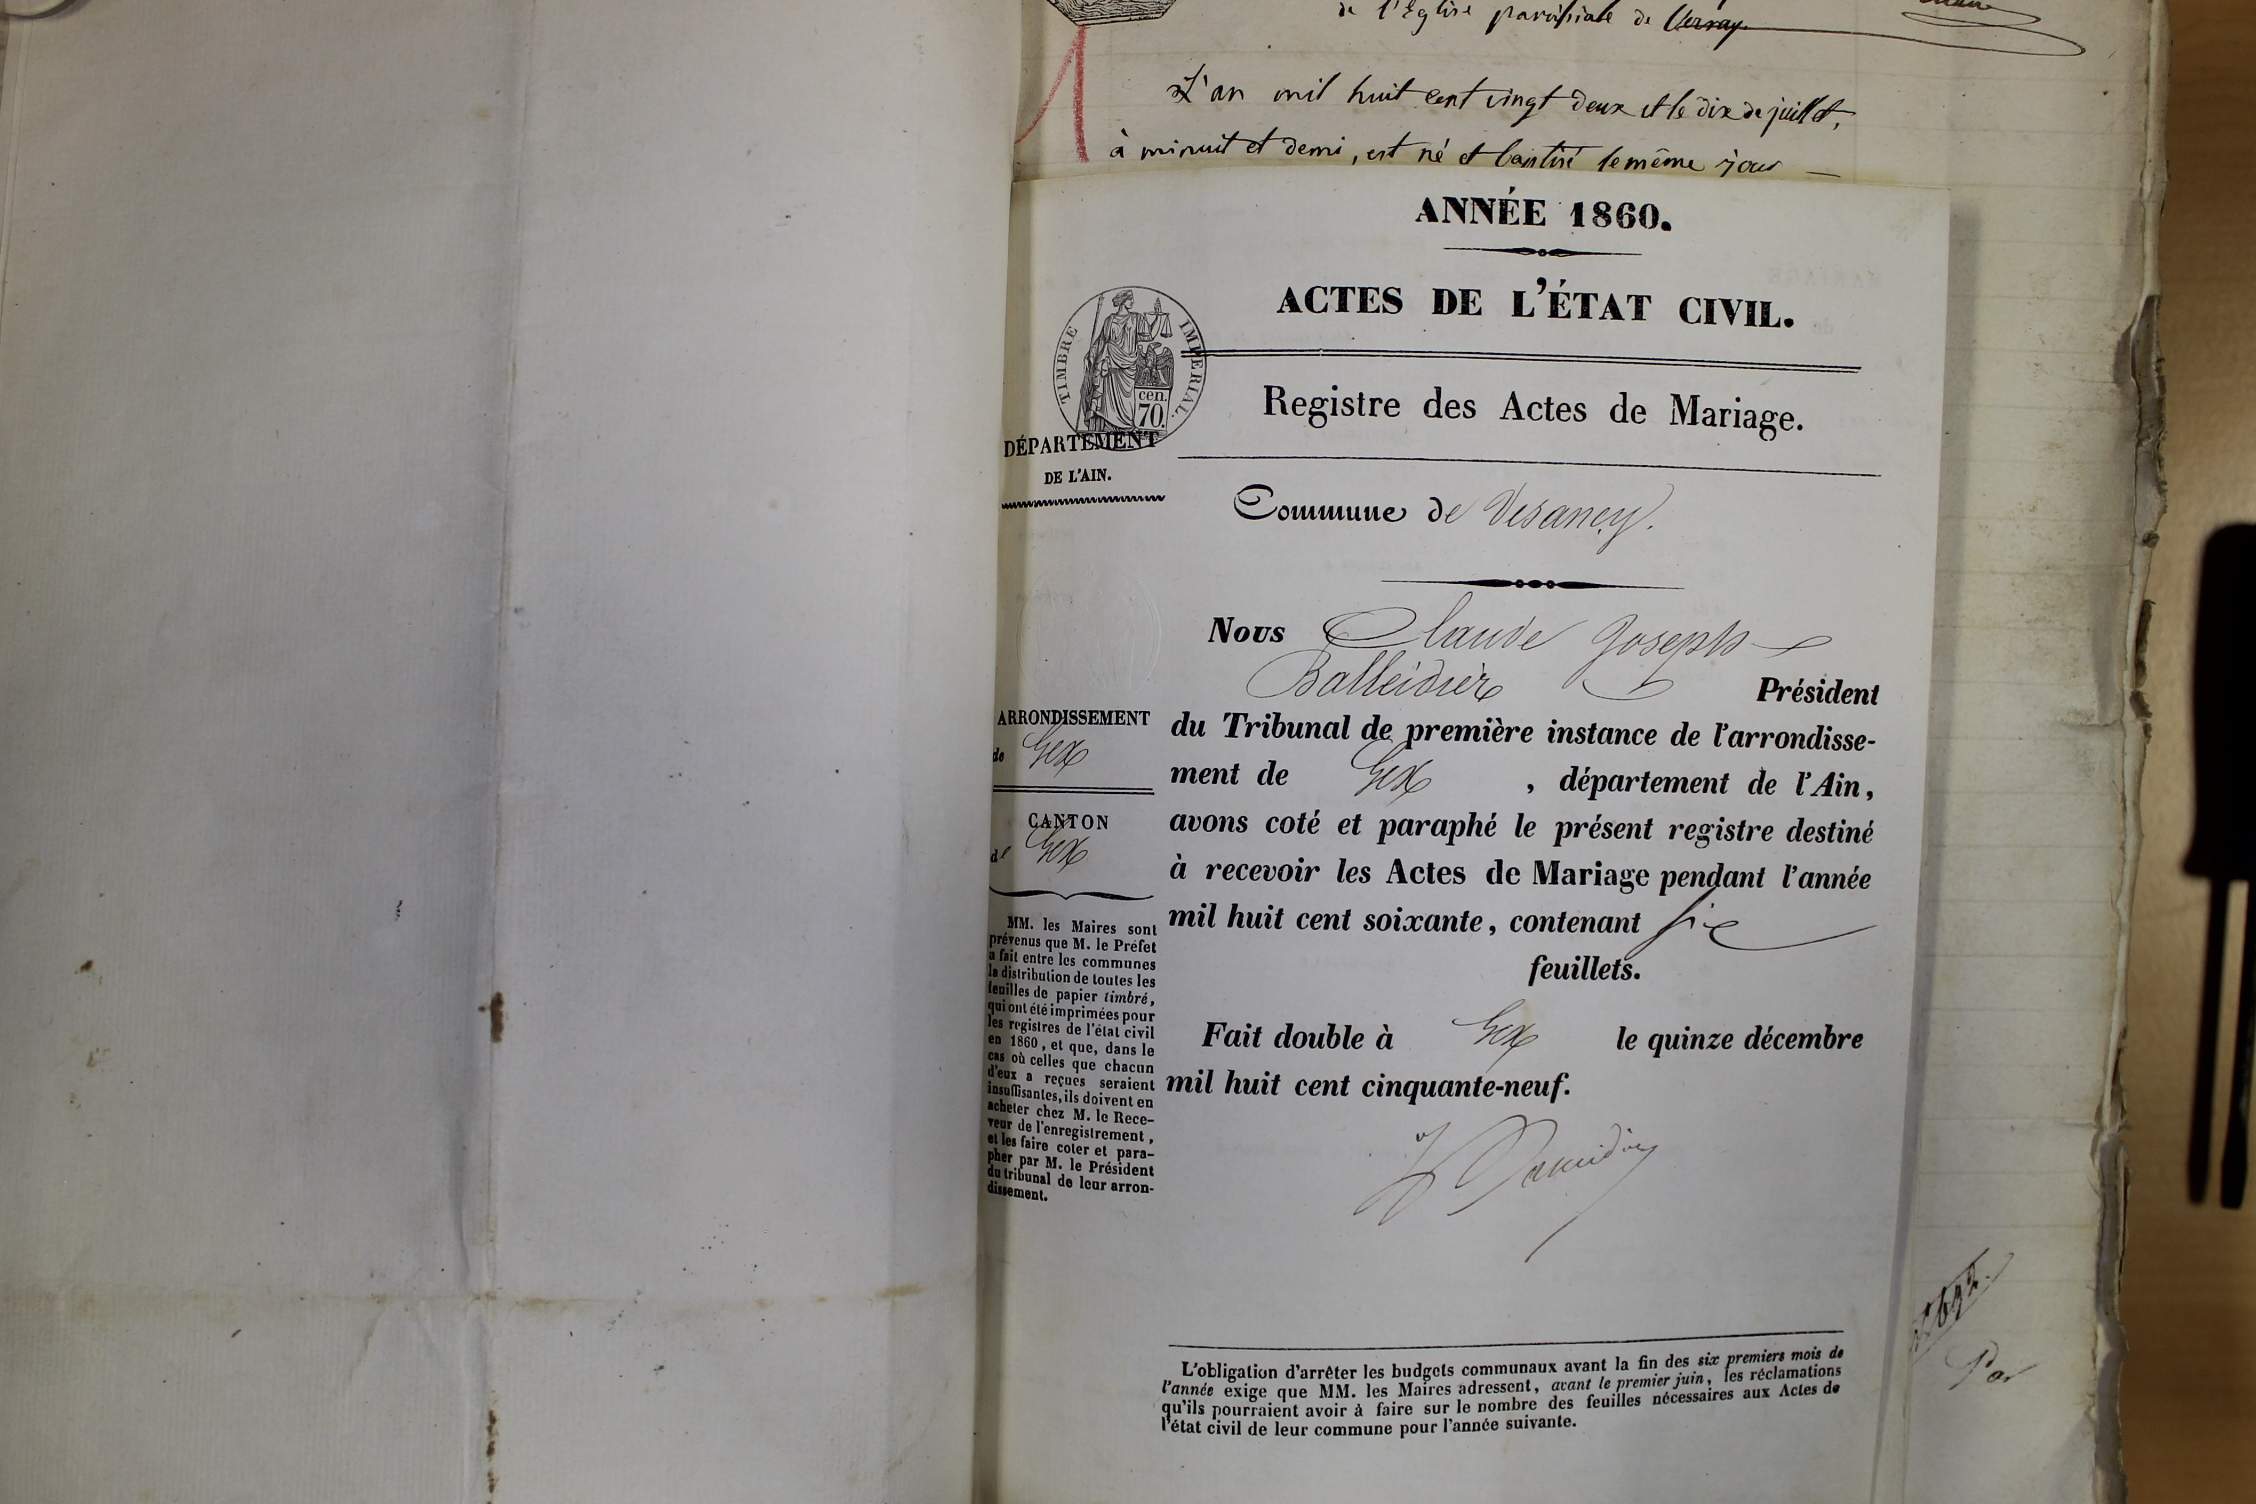 de l'Eglise paroissiale de
L'an mil huit cent vingt deux et le dix de juillet,
à minuit et demi, est né et baptisé le même jour —
ANNÉE 1860.
ACTES DE L'ÉTAT CIVIL.
TIMBRE IMPERIAL.
cen.
70.
Registre des Actes de Mariage.
DÉPARTEMENT
DE L'AIN.
Commune de Vesancy.
Nous Claude Joseph
Balleidier Président
du Tribunal de première instance de l'arrondisse-
ment de Gex, département de l'Ain,
avons coté et paraphé le présent registre destiné
à recevoir les Actes de Mariage pendant l'année
mil huit cent soixante, contenant six
feuillets.
Fait double à Gex le quinze décembre
mil huit cent cinquante-neuf.
ARRONDISSEMENT
de Gex
CANTON
de Gex
MM. les Maires sont
prévenus que M. le Préfet
a fait entre les communes
la distribution de toutes les
feuilles de papier timbré,
qui ont été imprimées pour
les registres de l'état civil
en 1860, et que, dans le
cas où celles que chacun
d'eux a reçues seraient
insuffisantes, ils doivent en
acheter chez M. le Rece-
veur de l'enregistrement,
et les faire coter et para-
pher par M. le Président
du tribunal de leur arron-
dissement.
L'obligation d'arrêter les budgets communaux avant la fin des six premiers mois de
l'année exige que MM. les Maires adressent, avant le premier juin, les réclamations
qu'ils pourraient avoir à faire sur le nombre des feuilles nécessaires aux Actes de
l'état civil de leur commune pour l'année suivante.
Par